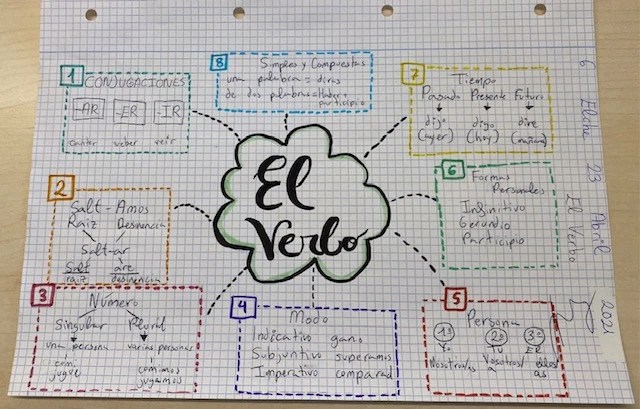 El
Verbo
1
CONJUGACIONES
-AR -ER -IR
cantar
2
Salt - Amos
Raíz Desinencia
Salt-ar
Salt
raíz desinencia
3
Número
Singular Plural
una persona varias personas
comí comimos
jugué jugamos
4
Modo
Indicativo gano
Subjuntivo superamos
Imperativo comparad
5
Persona
1ª 2ª 3ª
Yo Tú Él
Nosotros/a Vosotros/ ellos/as
6
Formas
Personales
Infinitivo
Gerundio
Participio
7
Tiempo
Pasado Presente Futuro
digo
(ayer) (hoy) (mañana)
8
Simples y Compuestas
una palabra =
de dos palabras = Haber+
participio
6 Elena 23 Abril
El Verbo
2021